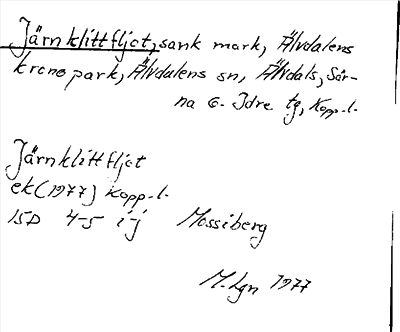 Järnklittfljot, sank mark, Älvdalens
kronopark, Älvdalens sn, Älvdals, Sär-
na o. Idre tg, Kopp. l.
Järnklittfljot
ek (1977) Kopp. l.
15D 4-5 i-j Mossiberg
M. Lgn 1977